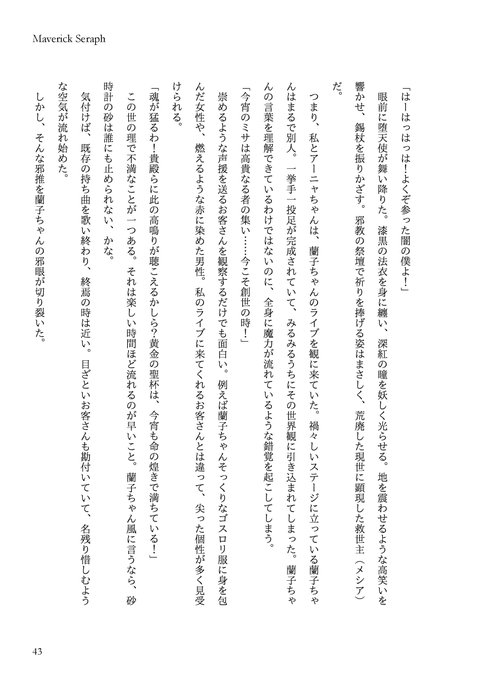 Maverick Seraph
「はーはっはっは！よくぞ参った闇の僕よ！」
眼前に堕天使が舞い降りた。漆黒の法衣を身に纏い、深紅の瞳を妖しく光らせる。地を震わせるような高笑いを
響かせ、錫杖を振りかざす。邪教の祭壇で祈りを捧げる姿はまさしく、荒廃した現世に顕現した救世主（メシア）
だ。
つまり、私とアーニャちゃんは、蘭子ちゃんのライブを観に来ていた。禍々しいステージに立っている蘭子ちゃ
んはまるで別人。一挙手一投足が完成されていて、みるみるうちにその世界観に引き込まれてしまった。蘭子ちゃ
んの言葉を理解できているわけではないのに、全身に魔力が流れているような錯覚を起こしてしまう。
「今宵のミサは高貴なる者の集い……今こそ創世の時！」
崇めるような声援を送るお客さんを観察するだけでも面白い。例えば蘭子ちゃんそっくりなゴスロリ服に身を包
んだ女性や、燃えるような赤に染めた男性。私のライブに来てくれるお客さんとは違って、尖った個性が多く見受
けられる。
「魂が猛るわ！貴殿らに此の高鳴りが聴こえるかしら？黄金の聖杯は、今宵も命の煌きで満ちている！」
この世の理で不満なことが一つある。それは楽しい時間ほど流れるのが早いこと。蘭子ちゃん風に言うなら、砂
時計の砂は誰にも止められない、かな。
気付けば、既存の持ち曲を歌い終わり、終焉の時は近い。目ざといお客さんも勘付いていて、名残り惜しむよう
な空気が流れ始めた。
しかし、そんな邪推を蘭子ちゃんの邪眼が切り裂いた。
43